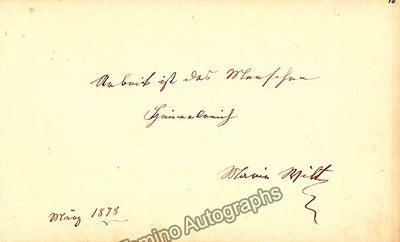 Arbeit ist des Menschen
Himmelreich
Marie Wilt
März 1878
Tamino Autographs